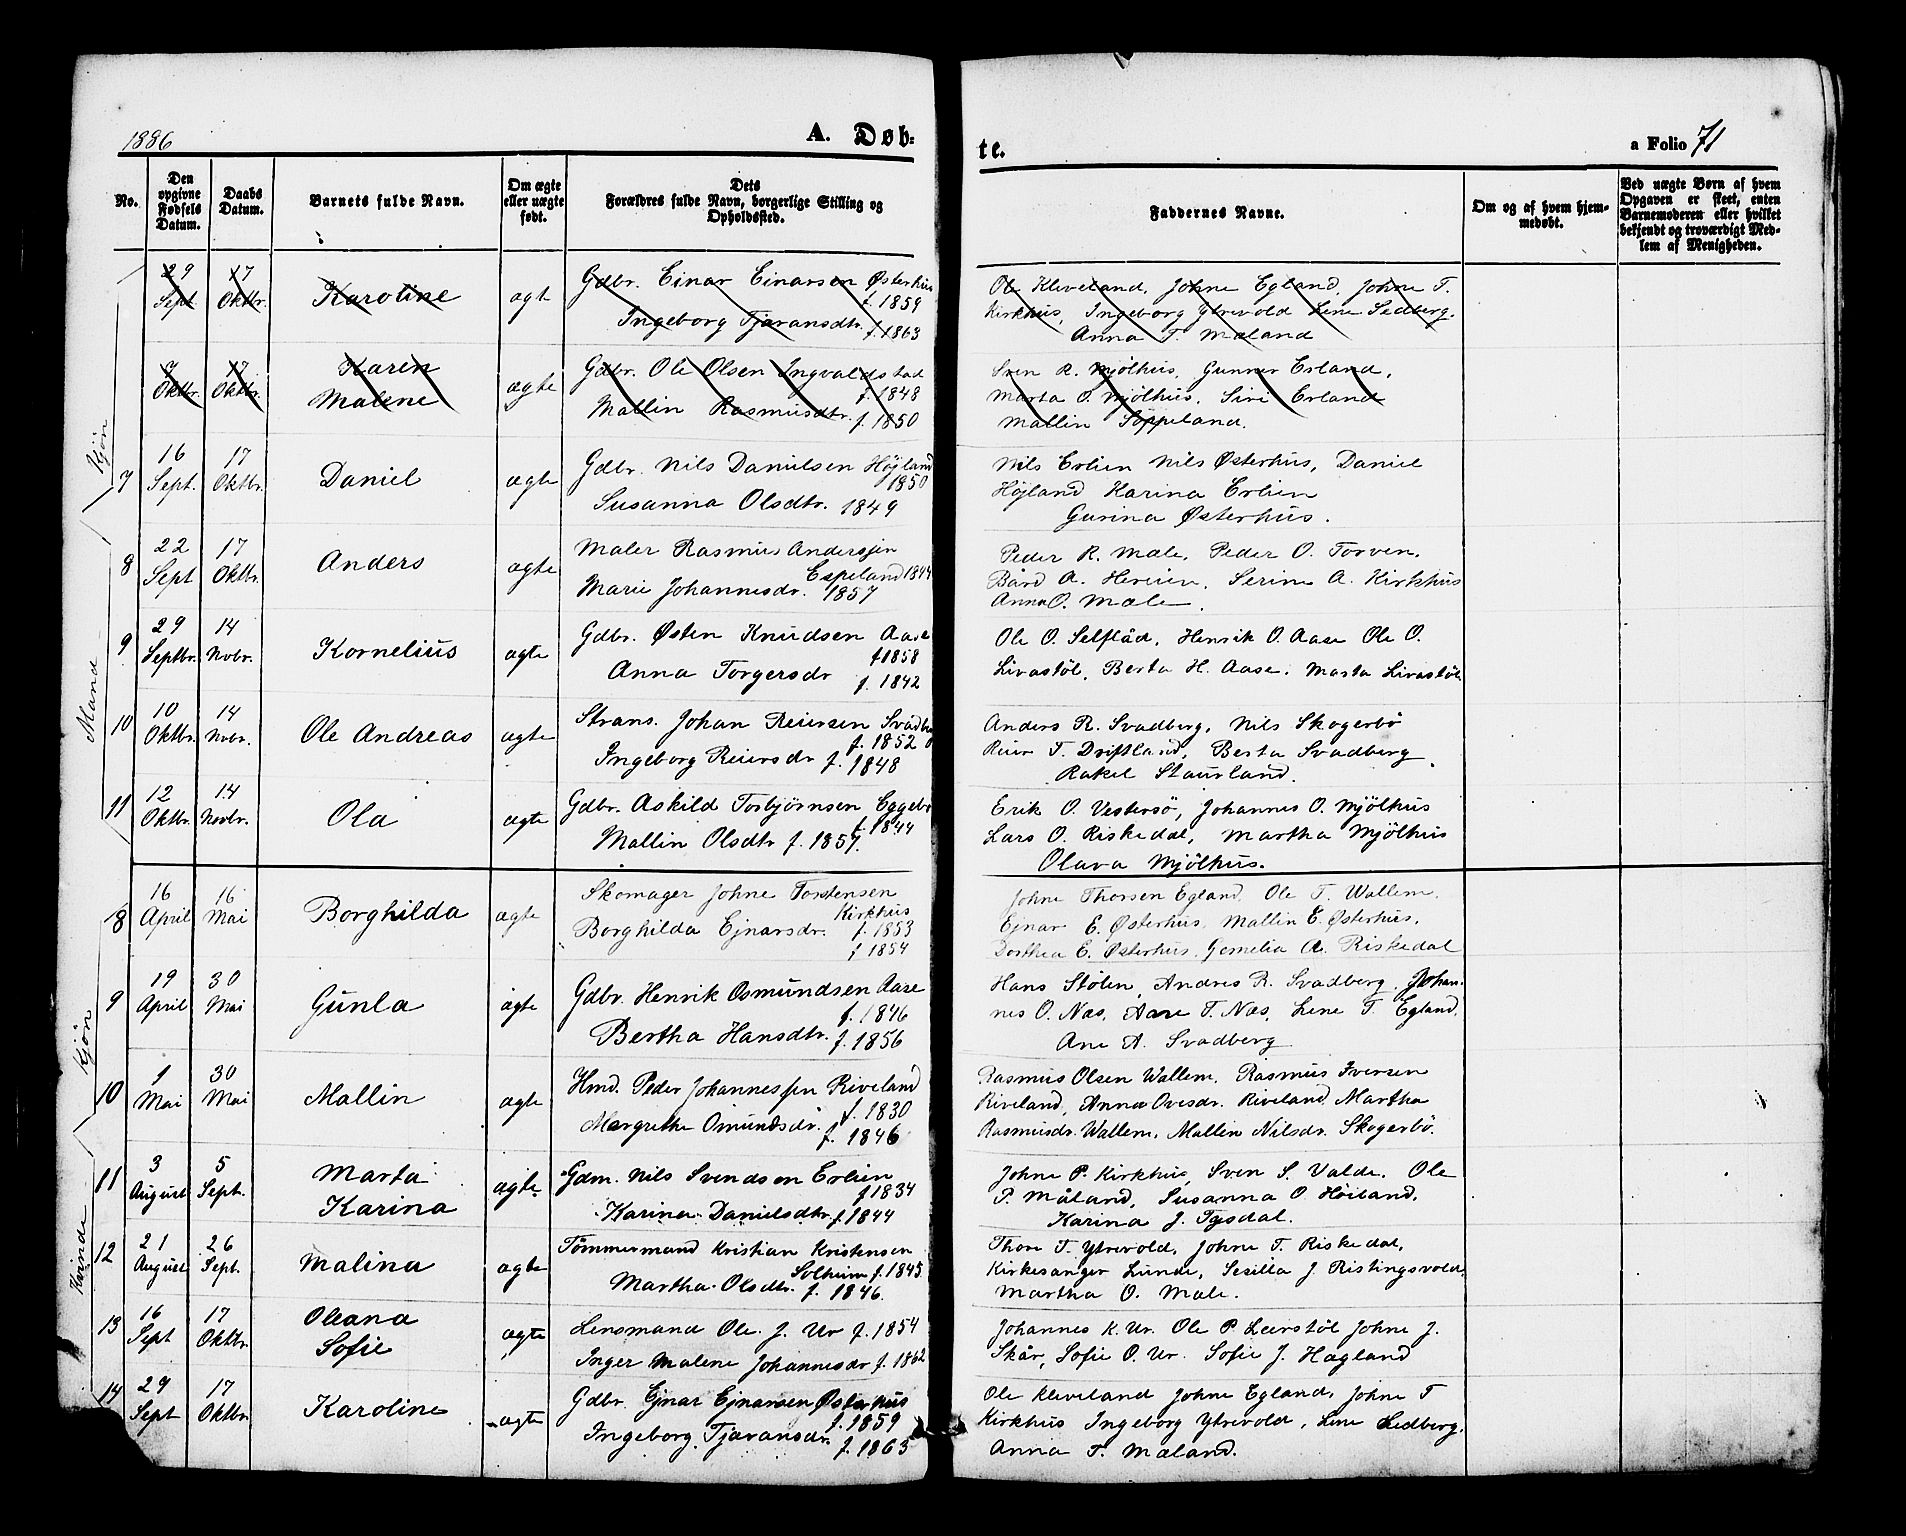 1886
A. Døb=
te.
a Folio 71
No.
Den opgivne Fødsels Datum.
Daabs Datum.
Barnets fulde Navn.
Om ægte eller uægte født.
Dets Forældres fulde Navn, borgerlige Stilling og Opholdssted.
Faddernes Navne.
Om og af hvem hjem-
medøbt.
Ved uægte Børn af hvem
Opgaven er skeet, enten
Barnemoderen eller hvilket
bekjendt og troværdigt Med-
lem af Menigheden.
29 Sept 17 Oktbr. Karoline ægt Gdbr. Einar Einarsen Østerhus
f. 1859
Ingeborg Tjøransdtr. f. 1863
Ole Kleveland, Johne Egland, Johne T.
Kirkhus, Ingeborg Ytrevold Lene Sedberg.
Anna T. Mæland
7 Oktbr. 17 Oktbr. Karen Malene ægte Gdbr. Ole Olsen Ingvaldstad
f. 1848
Mallin Rasmusdtr. f. 1850
Sven R. Mjølhus, Gunner Erland,
Marta O. Mjølhus, Siri Erland
Mallin Søppeland.
Mand Kjøn
7 16 Sept. 17 Oktbr. Daniel ægte Gdbr. Nils Danielsen Høyland
1850
Susanna Olsdtr. 1849
Nils Erlien Nils Østerhus, Daniel
Høyland Karina Erlien
Gurina Østerhus.
8 22 Sept 17 Oktbr. Anders ægte Maler Rasmus Andersen
Espeland 1844
Marie Johannesdr. 1857
Peder R. Mæle, Peder O. Torven,
Bård A. Hereien, Serine A. Kirkhus
Anna O. Mæle.
9 29 Septbr. 14 Novbr. Kornelius ægte Gdbr. Østen Knudsen Aase
f 1858
Anna Torgersdr f. 1842
Ole O. Selstad, Henrik O. Aase Ole O.
Livastøl, Berta H. Aase, Marta Livastøl
10 10 Oktbr. 14 Nvbr. Ole Andreas ægte Strans. Johan Reiersen Svadberg
f. 1852
Ingeborg Reiersdr f. 1848
Anders R. Svadberg, Nils Skogerbø
Reier T. Driftland, Berta Svadberg
Rakel Staurland.
11 12 Oktbr. 14 Novbr. Ola ægte Gdbr. Askild Torbjørnsen Eggebø
f. 1844
Mallin Olsdtr f. 1857.
Erik O. Vestersø, Johannes O. Mjölhus
Lars O. Riskedal, Martha Mjölhus
Olava Mjölhus.
Kvinde Kjøn
8 16 April 16 Mai Borghilda ægte Skomager Johne Torstensen
Kirkhus
Borghilda Ejnarsdr. f. 1853
f 1854
Johne Thorsen Egland, Ole T. Wallem.
Ejnar E. Østerhus, Mallin E. Østerhus,
Dorthea E. Østerhus, Gemelia A. Riskedal
9 19 April 30 Mai Gunla ægte Gdbr. Henrik Osmundsen Aase
f. 1846
Bertha Hansdtr. f. 1856
Hans Stølen, Andres R. Svadberg, Johan-
nes O. Næs, Aare T. Næs, Lene T. Egland,
Ane A. Svadberg
10 1 Mai 30 Mai Mallin ægte Hmd. Peder Johannessen Riveland
f. 1830
Margrethe Omundsdr. f. 1846
Rasmus Olsen Wallem, Rasmus Iversen
Riveland, Anna Ovesdr. Riveland, Martha
Rasmusdr. Wallem, Mallin Nilsdr. Skogerbø.
11 3 August 5 Sept. Marta Karina ægte Gdm. Nils Svendsen Erlien
f 1834
Karina Danielsdtr f 1844
Johne P. Kirkhus, Sven S. Valde, Ole
P. Måland, Susanna O. Høiland,
Karina J. Tysdal.
12 21 August 26 Sept. Malina ægte Tømmermand Kristian Kristensen
Solheim f. 1845
Martha Olsdtr. f. 1846.
Thore T. Ytrevold, Johne T. Riskedal,
Kirkesanger Lunde, Sesilla J. Ristingsvold,
Martha O. Mæle.
13 16 Sept 17 Oktbr Oleana Sofie ægte Lensmand Ole J. Ur f. 1854
Inger Malene Johannesdr f. 1862
Johannes K. Ur. Ole P. Leirstøl Johne J.
Skår, Sofie O. Ur. Sofie J. Hægland
14 29 Sept 17 Oktbr Karoline ægte Gdbr. Ejnar Ejnarsen Østerhus
f. 1859
Ingeborg Tjøransdr. f. 1863
Ole Kleveland Johne Egland, Johne T
Kirkhus Ingeborg Ytrevold, Lene Sedberg,
Anna T. Mæland.